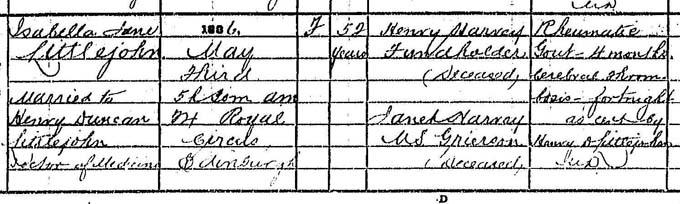 MD
Isabella Jane 1886, F 52 Henry Harvey Rheumatic
Littlejohn May years Fundholder Gout - 4 months
Third (Deceased) Cerebral Throm
Married to 5h 50m am bosis - fortnight
Henry Duncan 24 Royal Janet Harvey as cert by
Littlejohn Circus MS Grierson Henry D Littlejohn
Doctor of Medicine Edinburgh (deceased) MD
D